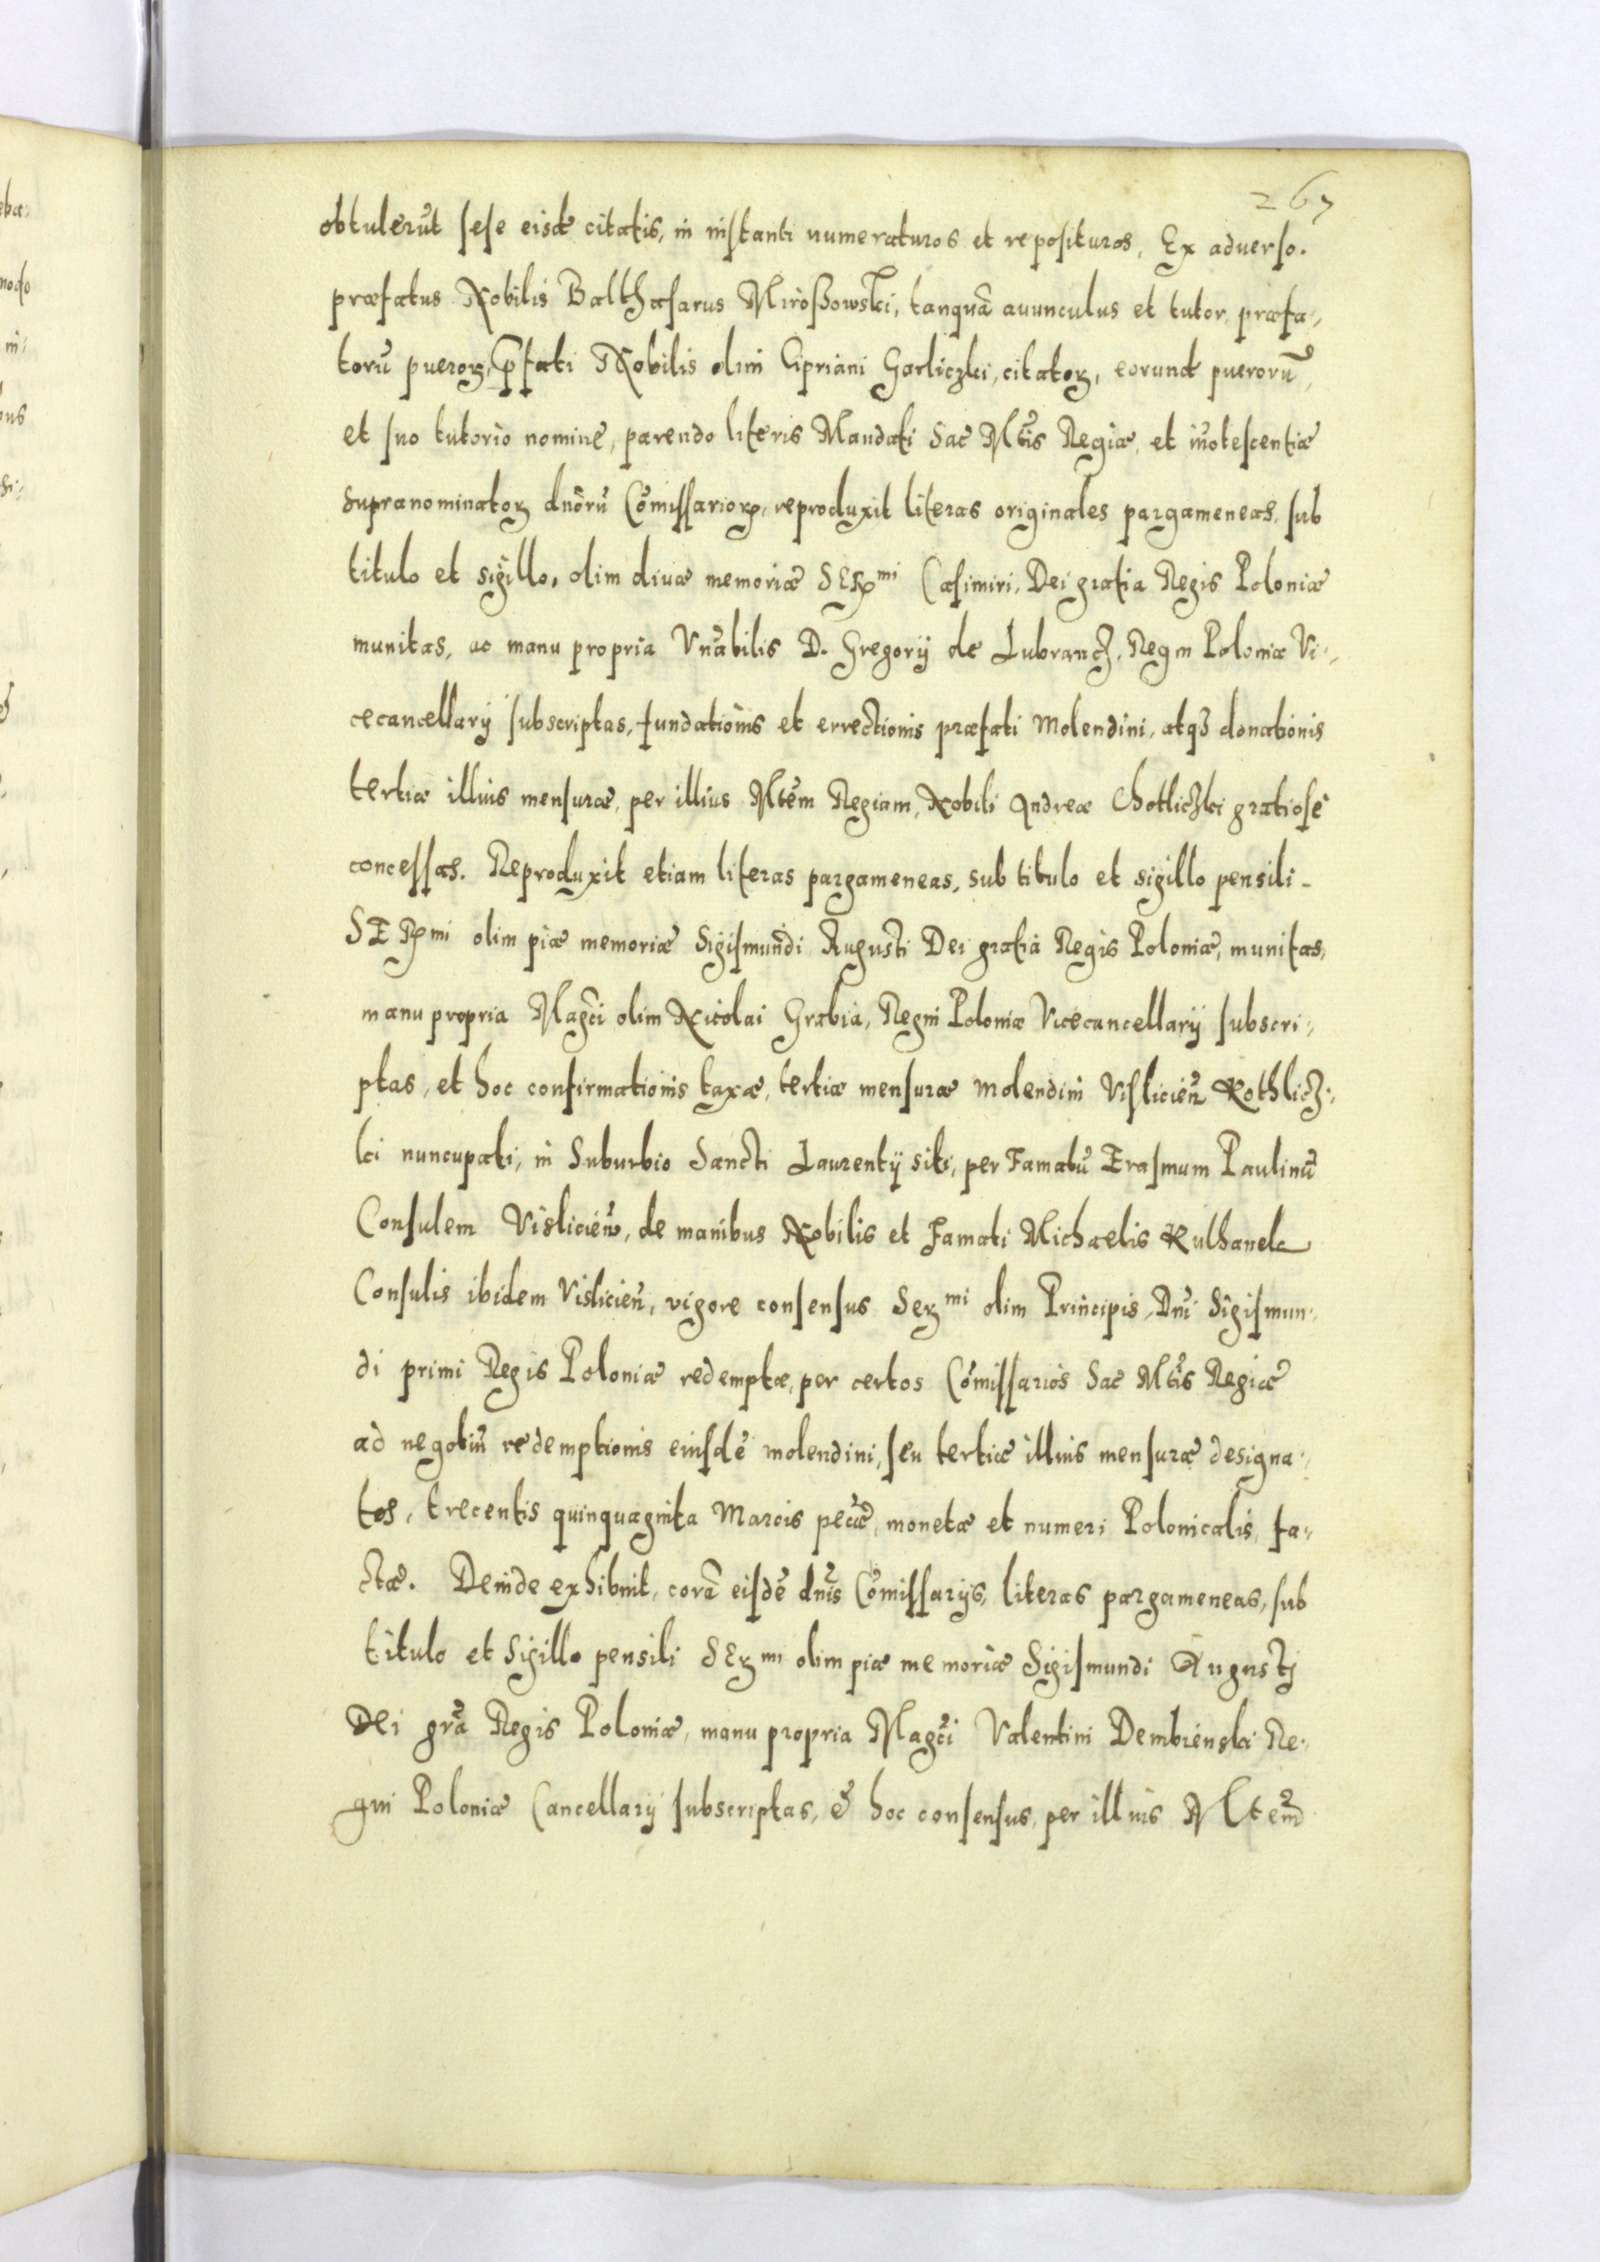 267
obtulerūt sese eisdē citatis, in instanti numeraturos et reposituros, Ex aduerso.
præfatus Nobilis Balthasarus Miroßowski, tanquā auunculus et tutor præfa,,
torū pueroꝝ, p̄fati Nobilis olim Cipriani Garliczki, citatoꝝ, eorundē puerorū,
et suo tutorio nomine, parendo literis Mandati Sac Mtis Regiæ, et iñotescentiæ
supranominatoꝝ dnorū Cōmissarioꝝ, reproduxit literas originales pargameneas, sub
titulo et sigillo, olim diuæ memoriæ SERmi Casimiri, Dei gratia Regis Poloniæ
munitas, ac manu propria Vnābilis D. Gregorij de Lubrancz, Regni Poloniæ Vi,,
cecancellarij subscriptas, fundationis et errectionis præfati Molendini, atqȝ donationis
tertiæ illius mensuræ, per illius Mtēm Regiam, Nobili Andreæ Chotliczki gratiose
concessas. Reproduxit etiam literas pargameneas, sub titulo et sigillo pensili
SERmi olim piæ memoriæ Sigismundi Augusti Dei gratia Regis Poloniæ, munitas,
manu propria Magci olim Nicolai Grabia, Regni Poloniæ Vicecancellarij subscri,,
ptas, et hoc confirmationis taxæ, tertiæ mensuræ molendini Visliciēn Kothlicz,,
ki nuncupati, in Suburbio Sancti Laurentij siti, per Famatū Erasmum Paulinū
Consulem Visliciēn, de manibus Nobilis et Famati Michaelis Kulhanek
Consulis ibidem Visliciēn, vigore consensus Serꝝmi olim Principis, Dni Sigismun,,
di primi Regis Poloniæ redemptæ, per certos Cōmissarios Sac Mtis Regiæ
ad negotiū redemptionis eiusdē molendini, seu tertiæ illius mensuræ designa,,
tos, trecentis quinquaginta Marcis pecūæ, monetæ et numeri Polonicalis, fa,,
ctæ. Deinde exhibuit, corā eisdē dnis Cōmissarijs, literas pargameneas, sub
titulo et sigillo pensili SERmi olim piæ memoriæ Sigismundi Augusti
Dei gra Regis Poloniæ, manu propria Magci Valentini Dembienski Re,,
gni Poloniæ Cancellarij subscriptas, & hoc consensus, per illius Mtem